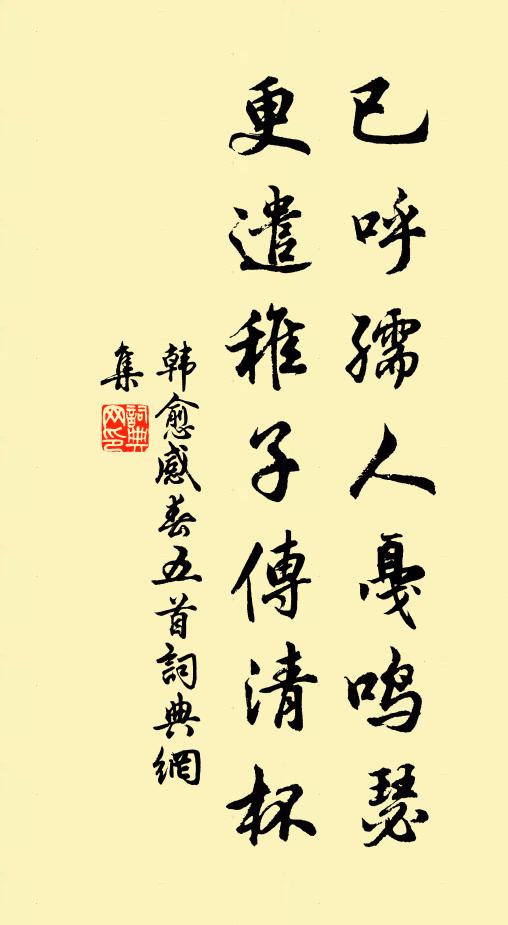 已呼孺人戛鳴瑟
更遣稚子傳清杯
韩愈感春五首詞典網
集
詞典
网印